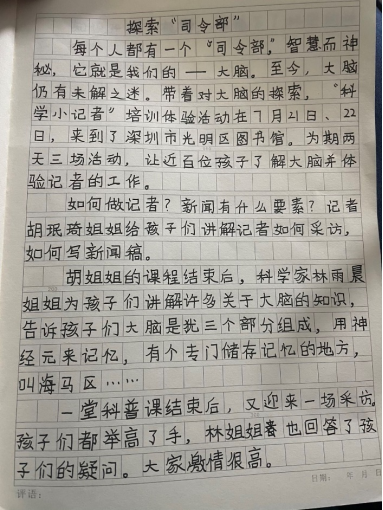 探索“司令部”
每个人都有一个“司令部”,智慧而神
秘,它就是我们的——大脑。至今,大脑
仍有未解之迷。带着对大脑的探索,“科
学小记者”培训体验活动在7月21日、22
日,来到了深圳市光明区图书馆。为期两
天三场活动,让近百位孩子了解大脑并体
验记者的工作。
如何做记者?新闻有什么要素?记者
胡珉琦姐姐给孩子们讲解记者如何采访,
如何写新闻稿。
胡姐姐的课程结束后,科学家林雨晨
姐姐为孩子们讲解许多关于大脑的知识,
告诉孩子们大脑是犹三个部分组成,用神
经元来记忆,有个专门储存记忆的地方,
叫海马区……
一堂科普课结束后,又迎来一场采访。
孩子们都举高了手,林姐姐也回答了孩
子们的疑问。大家激情很高。
日期: 年 月 日
评语: